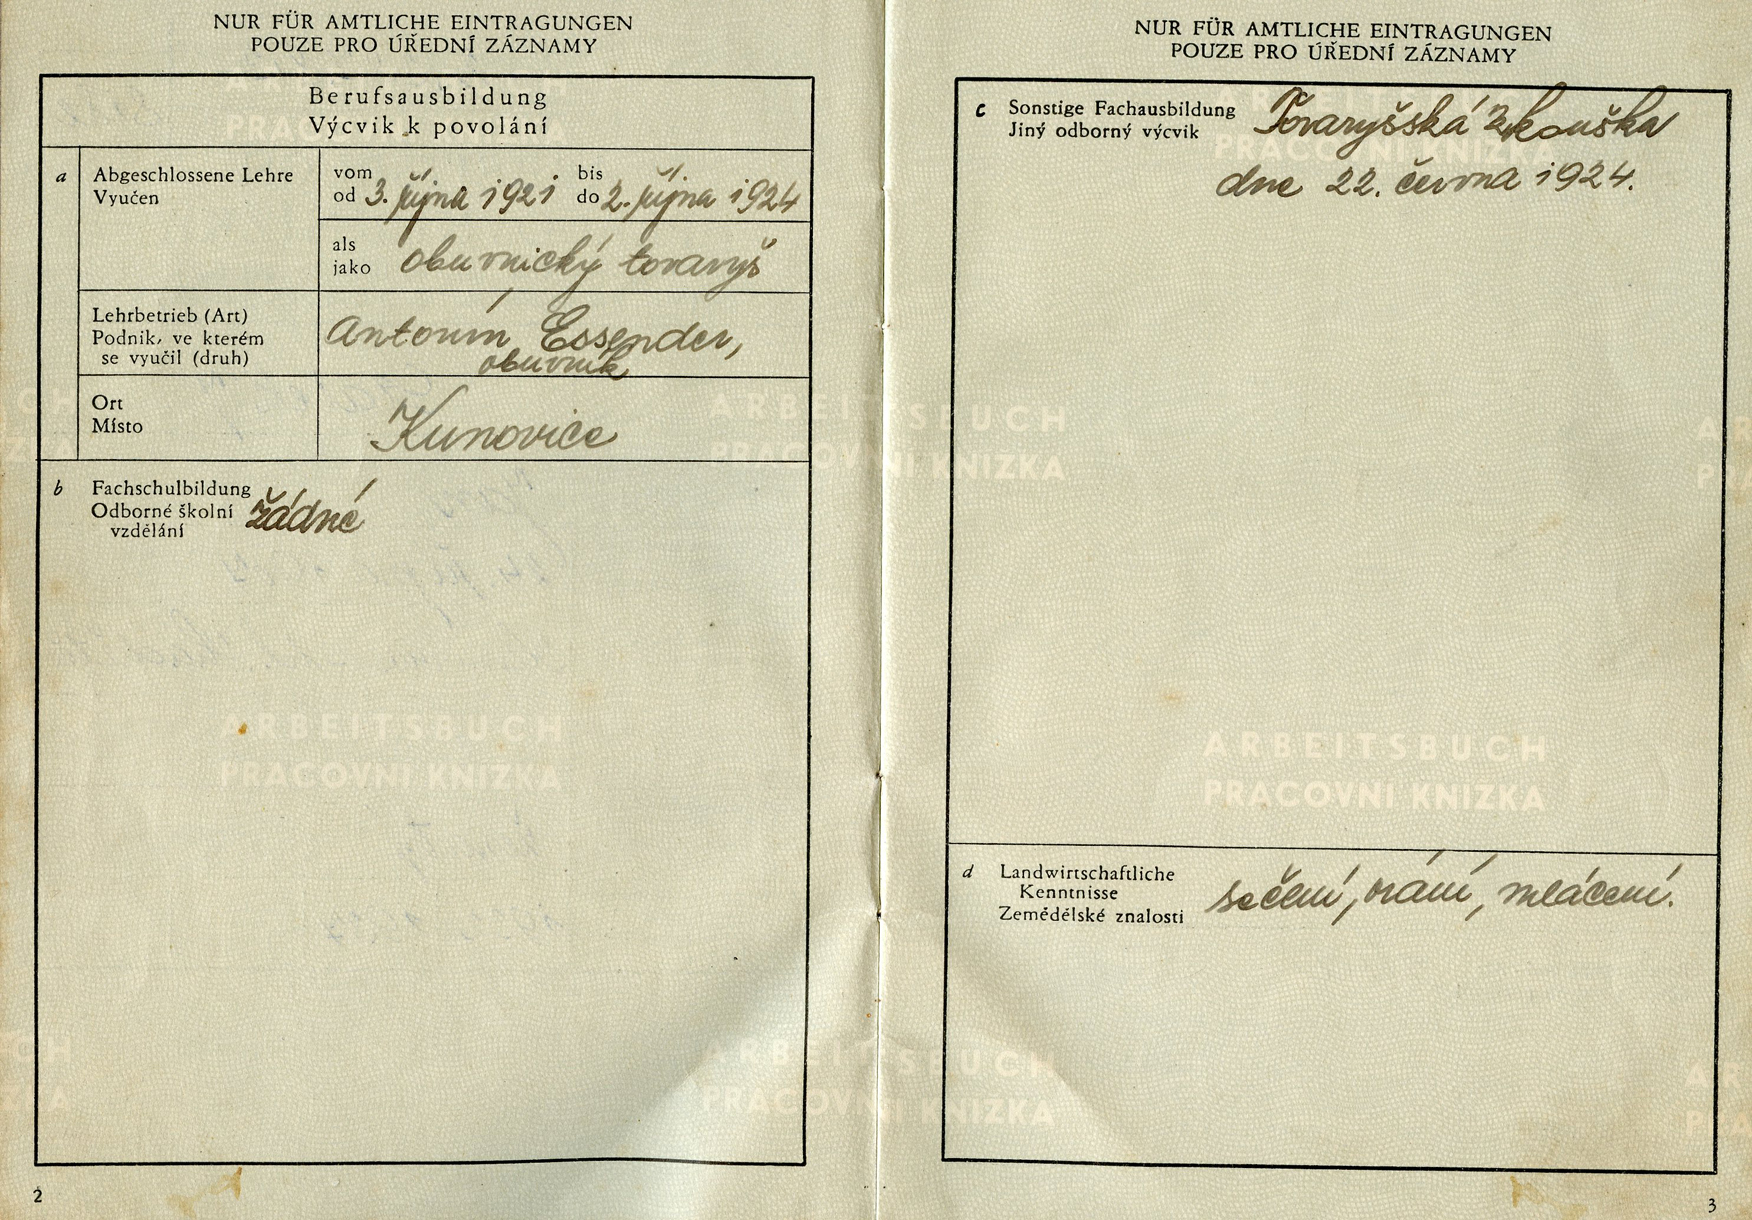 NUR FÜR AMTLICHE EINTRAGUNGEN
POUZE PRO ÚŘEDNÍ ZÁZNAMY
Berufsausbildung
Výcvik k povolání
a Abgeschlossene Lehre
Vyučen
vom bis
od 3. října 1921 do 2. října 1924
als
jako obuvnický tovaryš
Lehrbetrieb (Art)
Podnik, ve kterém
se vyučil (druh)
Antonín Essender,
obuvník
Ort
Místo
Kunovice
b Fachschulbildung
Odborné školní žádné
vzdělání
ARBEITSBUCH
PRACOVNÍ KNÍŽKA
2
NUR FÜR AMTLICHE EINTRAGUNGEN
POUZE PRO ÚŘEDNÍ ZÁZNAMY
c Sonstige Fachausbildung Tovaryšská zkouška
Jiný odborný výcvik
dne 22. června 1924.
ARBEITSBUCH
PRACOVNÍ KNÍŽKA
ARBEITSBUCH
PRACOVNÍ KNÍŽKA
d Landwirtschaftliche
Kenntnisse sečení, orání, mlácení.
Zemědělské znalosti
ARBEITSBUCH
PRACOVNÍ KNÍŽKA
3